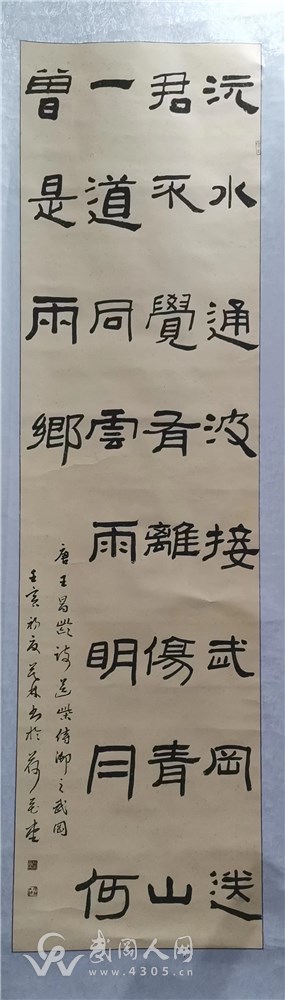 沅水通波接武岡送
君不覺有離傷青山
一道同雲雨明月何
曾是兩鄉
唐王昌齡詩送柴侍御之武岡
壬寅初夏 林書於荷花
武冈人网
www.4305.cn